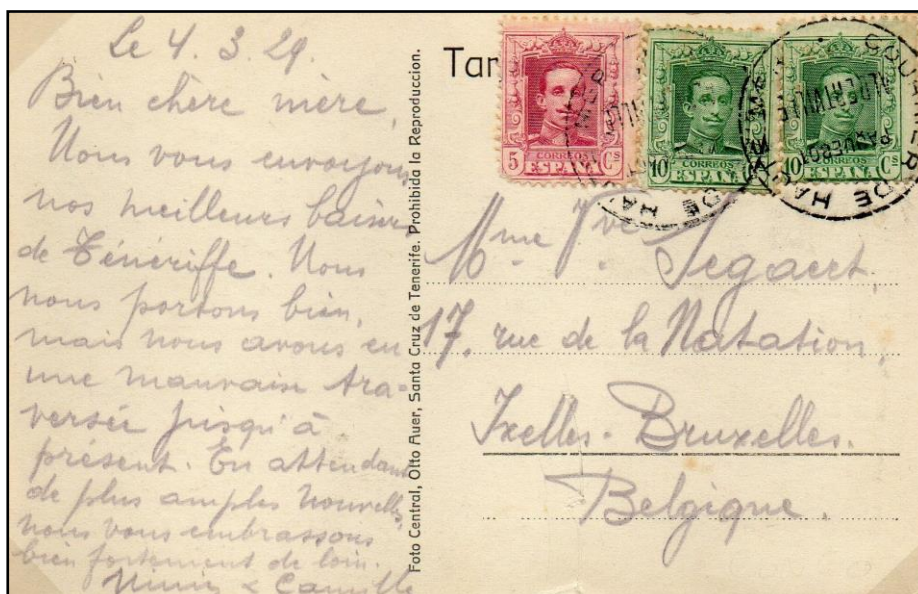 Le 4.3.29.
Bien chère mère,
Nous vous envoyons
nos meilleurs baisers
de Ténériffe. Nous
nous portons bien,
mais nous avons eu
une mauvaise tra-
versée jusqu'à
présent. En attendant
de plus amples nouvelles,
nous vous embrassons
bien fortement de loin.
& Camille
Foto Central, Otto Auer, Santa Cruz de Tenerife. Prohibida la Reproduccion.
Tar
5 Cs
CORREOS
ESPAÑA
10 Cs
CORREOS
ESPAÑA
10 Cs
CORREOS
ESPAÑA
ALBERTVILLE
PAQUEBOT
Mme Vve Segaert
17, rue de la Natation,
Ixelles-Bruxelles.
Belgique.